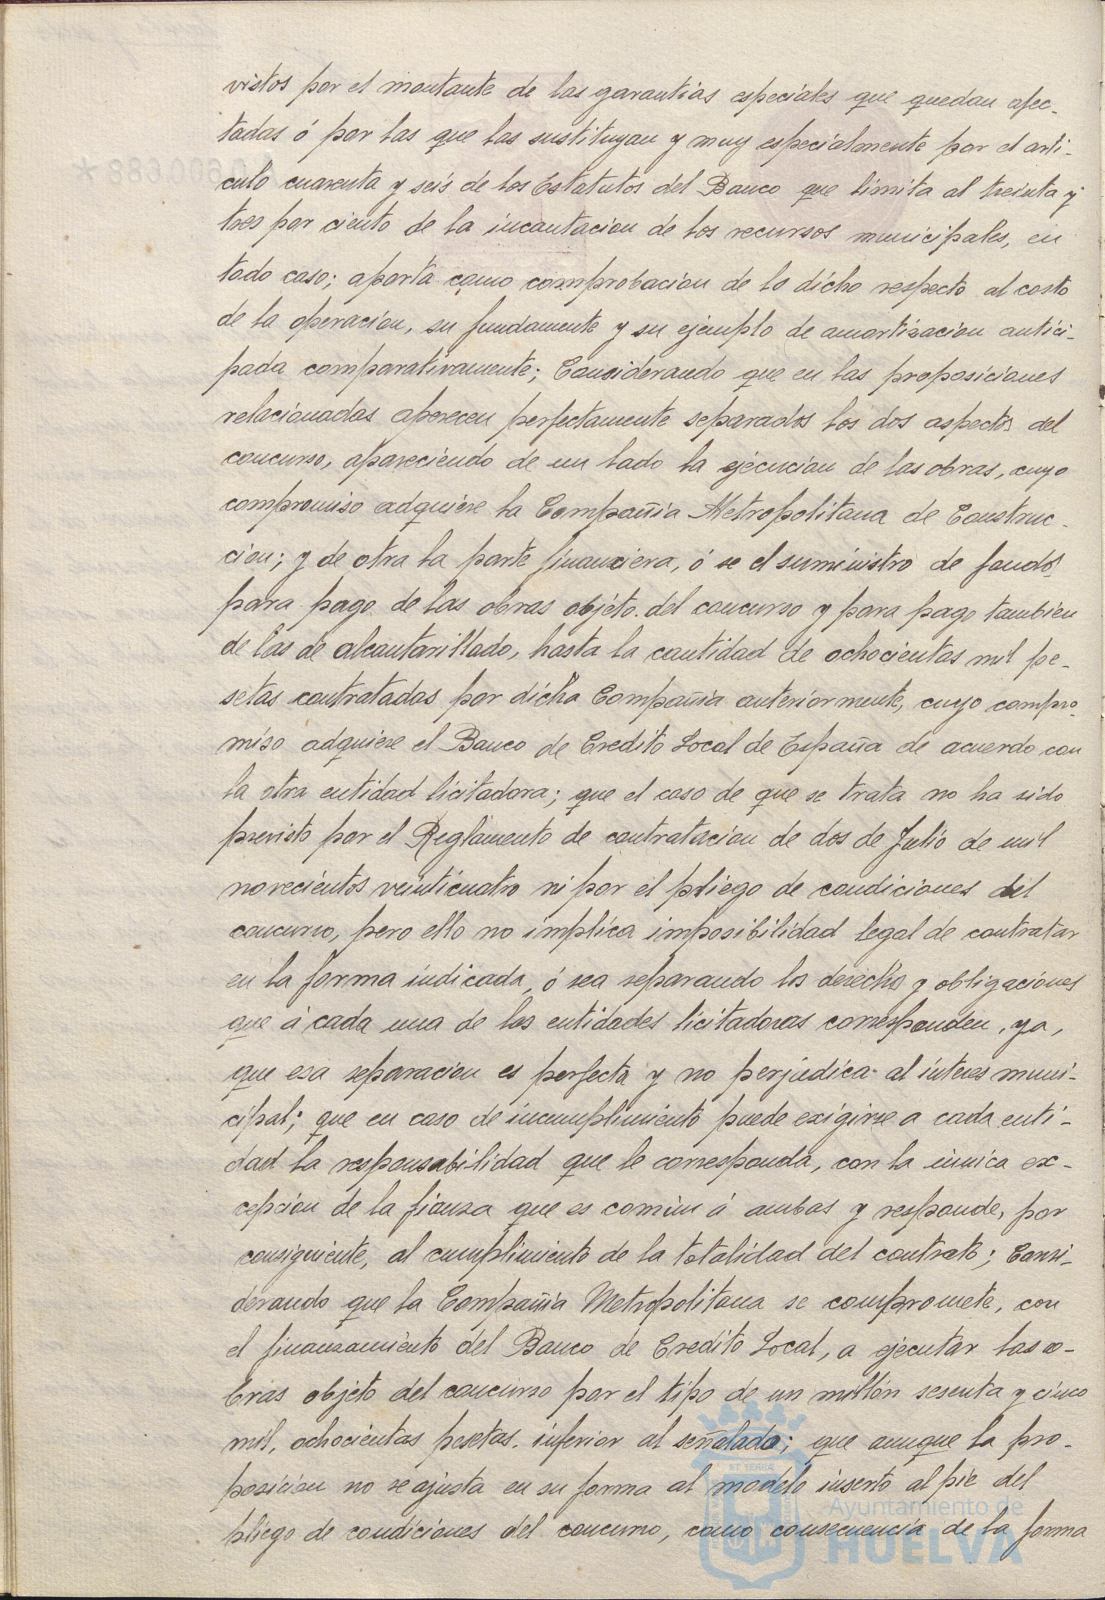 vistos por el montante de las garantias especiales que quedan afec-
tadas ó por las que las sustituyan y muy especialmente por el arti-
culo cuarenta y seis de los Estatutos del Banco que limita al treinta y
tres por ciento de la incautacion de los recursos municipales, en
todo caso; aporta como comprobacion de lo dicho respecto al costo
de la operacion, su fundamente y su ejemplo de amortizacion antici-
pada comparativamente; Considerando que en las proposiciones
relacionadas aparecen perfectamente separados los dos aspectos del
concurso, apareciendo de un lado la ejecucion de las obras, cuyo
compromiso adquiere la Compañia Metropolitana de Construc-
cion; y de otra la parte financiera, ó se el suministro de fondos
para pago de las obras objeto del concurso y para pago tambien
de las de alcantarillado, hasta la cantidad de ochocientas mil pe-
setas contratadas por dicha Compañia anteriormente, cuyo compro-
miso adquiere el Banco de Credito Local de España de acuerdo con
la otra entidad licitadora; que el caso de que se trata no ha sido
previsto por el Reglamento de contratacion de dos de Julio de mil
novecientos veinticuatro ni por el pliego de condiciones del
concurso, pero ello no implica imposibilidad legal de contratar
en la forma indicada, ó sea separando los derechos y obligaciones
que á cada una de las entidades licitadoras corresponden, ya,
que esa separacion es perfecta y no perjudica al interes muni-
cipal; que en caso de incumplimiento puede exigirse a cada enti-
dad la responsabilidad que le corresponda, con la unica ex-
cepcion de la fianza que es comun á ambas y responde, por
consiguiente, al cumplimiento de la totalidad del contrato; Consi-
derando que la Compañia Metropolitana se compromete, con
el finanzamiento del Banco de Credito Local, a ejecutar las o-
bras objeto del concurso por el tipo de un millón sesenta y cinco
mil, ochocientas pesetas. inferior al señalado; que aunque la pro-
posicion no se ajusta en su forma al modelo inserto al pie del
pliego de condiciones del concurso, como consecuencia de la forma
Ayuntamiento de
HUELVA